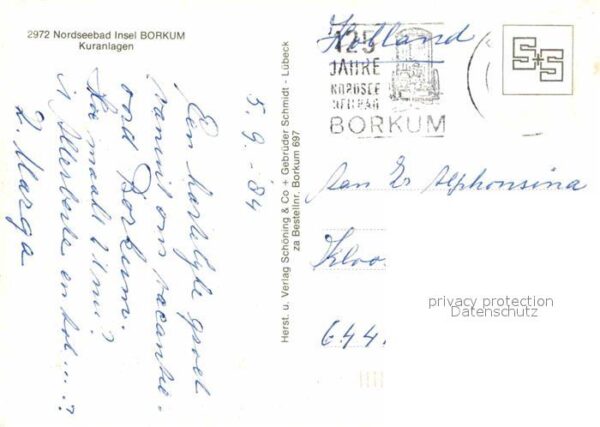 2972 Nordseebad Insel BORKUM
Kuranlagen
5.9.-84
Een hartelijke groet
vanuit ons vacantie-
oord Borkum.
Hoe maakt U 't nu?
is Allerbeste en tot ....?
Z. Marga
Herst. u. Verlag Schöning & Co + Gebrüder Schmidt - Lübeck
za Bestellnr. Borkum 697
Holland
125
JAHRE
NORDSEE
HEILBAD
BORKUM
S+S
aan Zr Alphonsina
Kloo
644
privacy protection
Datenschutz